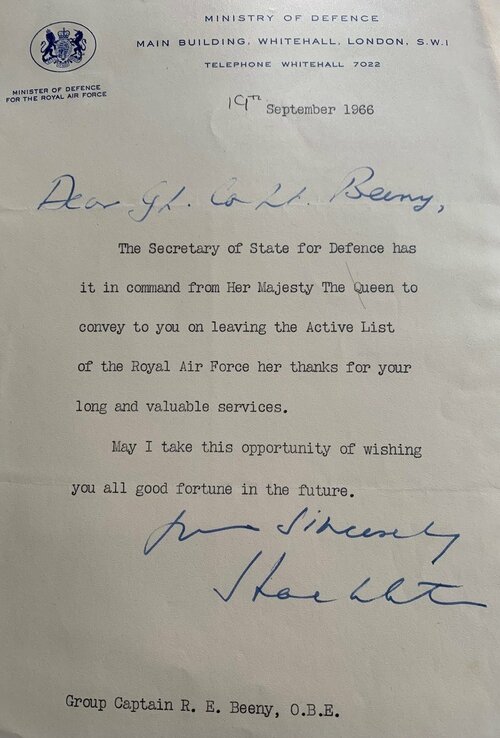 MINISTRY OF DEFENCE
MAIN BUILDING, WHITEHALL, LONDON, S.W.1
TELEPHONE WHITEHALL 7022
MINISTER OF DEFENCE
FOR THE ROYAL AIR FORCE
19TH September 1966
Dear Gp. Capt. Beeny,
The Secretary of State for Defence has
it in command from Her Majesty The Queen to
convey to you on leaving the Active List
of the Royal Air Force her thanks for your
long and valuable services.
May I take this opportunity of wishing
you all good fortune in the future.
Yours Sincerely
Group Captain R. E. Beeny, O.B.E.